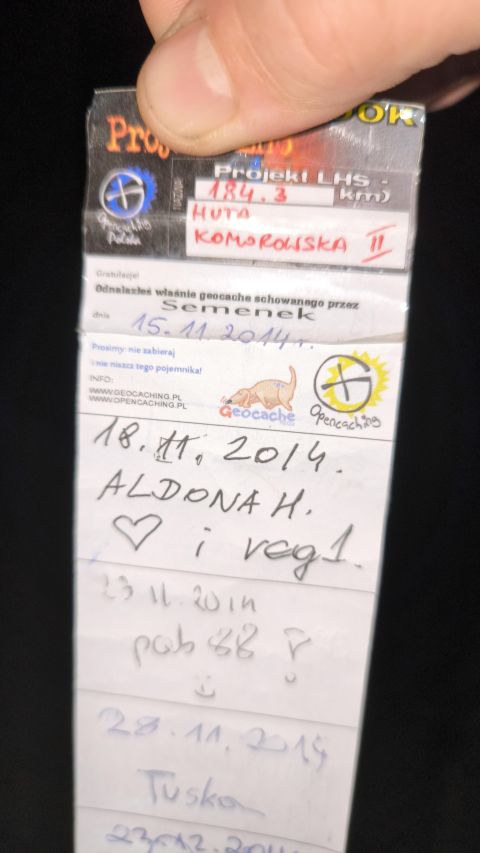 OOK
Projekt LHS -
184.3 km)
HUTA
KOMOROWSKA II
Opencaching
Polska
Gratulacje!
Odnalazłeś właśnie geocache schowanego przez
Semenek
dnia 15.11.2014r.
Prosimy: nie zabieraj
i nie niszcz tego pojemnika!
INFO:
WWW.GEOCACHING.PL
WWW.OPENCACHING.PL
Geocache
Opencaching
18.11.2014.
ALDONA H.
♡ i reg1.
23 11.2014
pab 88
28.11.2014
Tuska
23.12.2014